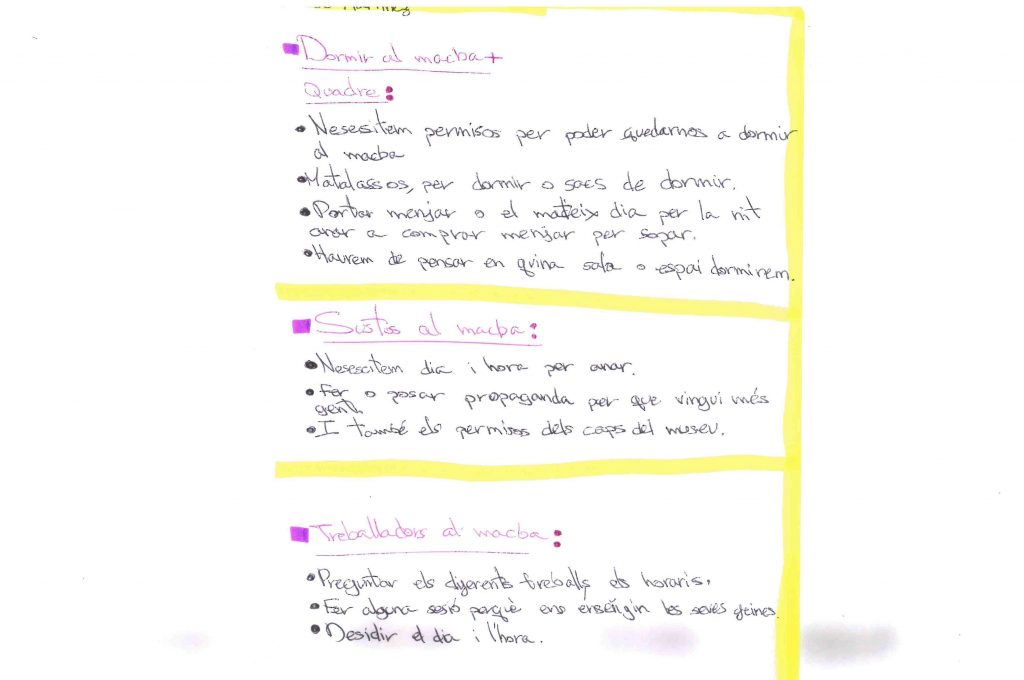 Dormir al macba +
Quadre:
• Nesesitem permisos per poder quedarnos a dormir
al macba
• Matalassos, per dormir o sacs de dormir.
• Portar menjar o el mateix dia per la nit
anar a comprar menjar per sopar.
• Haurem de pensar en quina sala o espai dormirem.
Sustos al macba:
• Nesescitem dia i hora per anar.
• Fer o posar propaganda per que vingui més
gent.
• I també els permisos dels caps del museu.
Treballadors al macba:
• Preguntar els diferents treballs els horaris.
• Fer alguna sesió perquè ens ensengin les seves feines.
• Desidir el dia i l'hora.